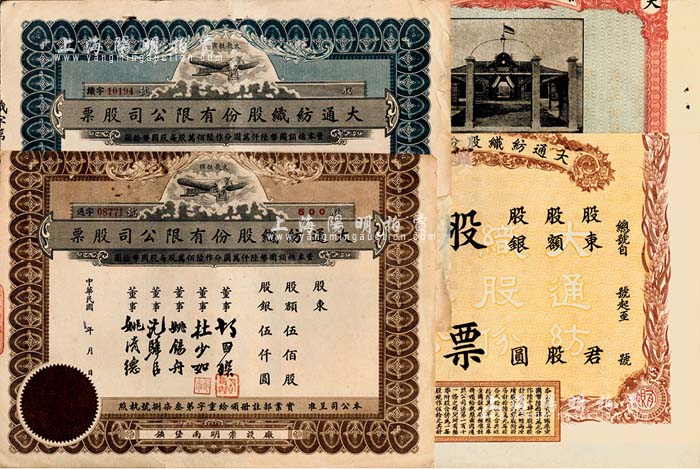 上海陽明拍賣
www.yangmingauction.com
織字 10194 號
票股司公限有份股織紡通大
資本總額國幣陸仟萬圓分作陸佰萬股每股國幣拾圓
通字 08771 號
500 股
票股司公限有份股織紡通大
資本總額國幣陸仟萬圓分作陸佰萬股每股國幣拾圓
上海陽明拍賣
www.yangmingauction.com
股東
股額伍佰股
股銀伍仟圓
董事
董事 杜少如
董事 姚錫舟
董事
董事 姚清德
中華民國 年 月 日
本公司呈准
實業部註冊頒給重字第叁柒捌號執照
廠設崇明南堡鎮
大通紡織股份
總號自 號起至 號
股東 君
股額 股
股銀 圓
股票
大通紡
織股份